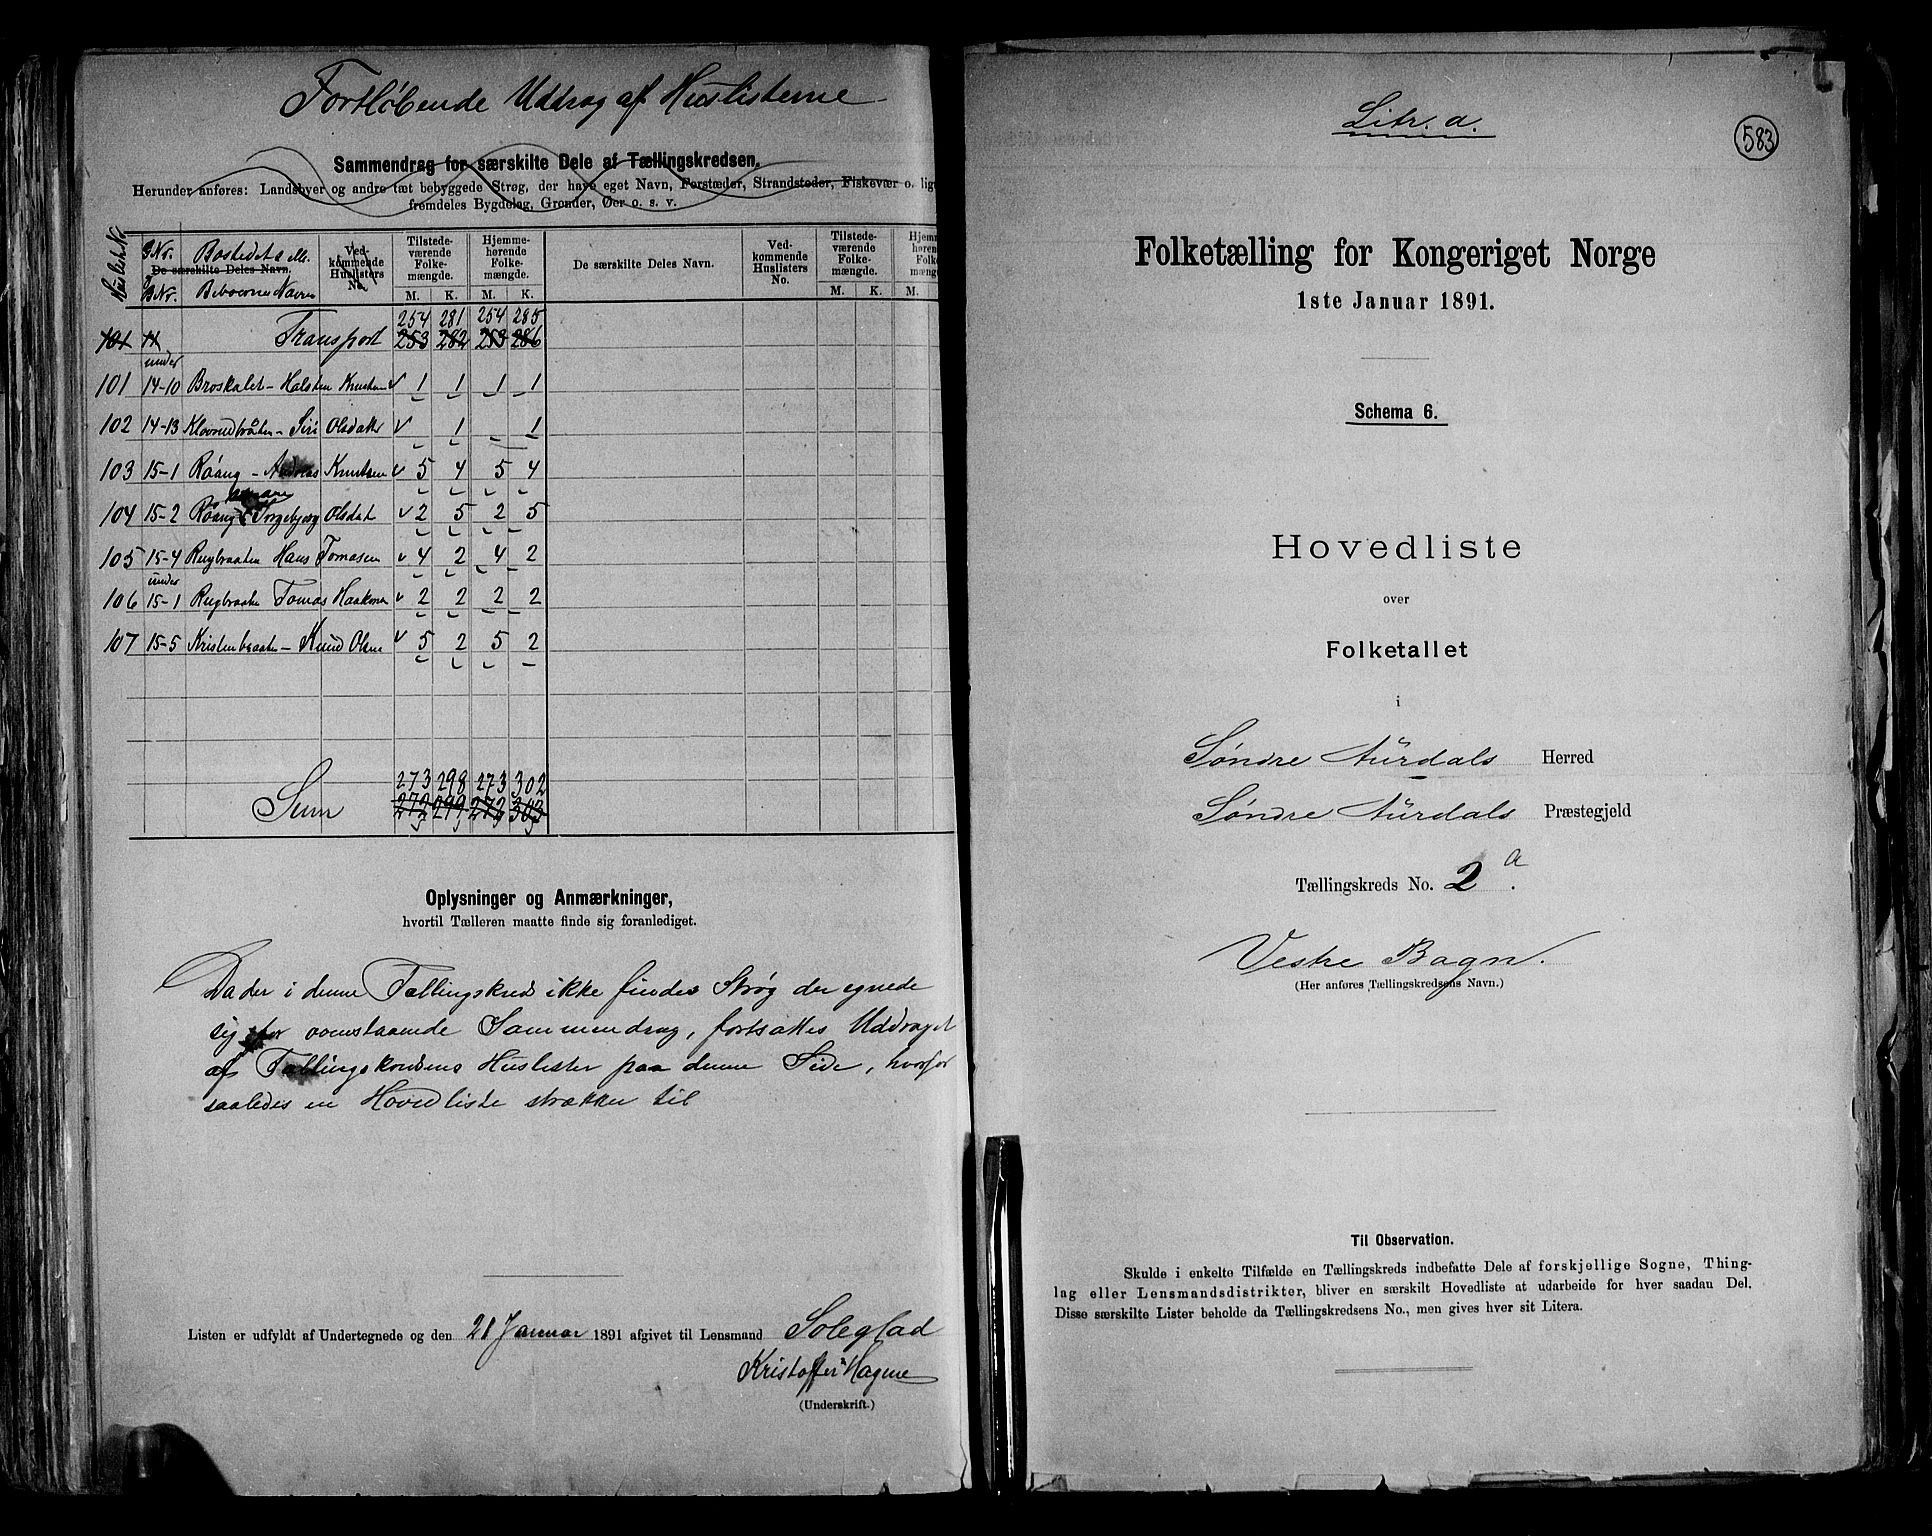 Fortløbende Uddrag af Huslisterne
Sammendrag for særskilte Dele af Tællingskredsen.
Herunder anføres: Landsbyer og andre tæt bebyggede Strøg, der have eget Navn, Forstæder, Strandsteder, Fiskevær o. lig
fremdeles Bygdelag, Grender, Øer o. s. v.
Husliste No. G.Nr. B.Nr. Bostedets elle. Beboerne Navn
De særskilte Deles Navn. Vedkommende Huslisters No. Tilstedeværende Folkemængde. Hjemmehørende Folkemængde. De særskilte Deles Navn. Vedkommende Huslisters No. Tilstedeværende Folkemængde.
M. K. M. K. M. K. M.
254 281 254 285
101 Transport 253 282 253 286
under
101 14-10 Broskalet - Halsten Knutsen 1 1 1 1
102 14-13 Klovnedbråten - Siri Olsdatter 1 - 1
103 15-1 Røang - Andreas Knutsen 5 4 5 4
104 15-2 Røang Torgebjørg Olsdat 2 5 2 5
105 15-4 Rugbraaten Hans Tomasen 4 2 4 2
under
106 15-1 Rugbraate Tomas Haakonsen 2 2 2 2
107 15-5 Kristenbraaten - Knud Olsen 5 2 5 2
273 298 273 302
Sum 272 299 272 303
Oplysninger og Anmærkninger,
hvortil Tælleren maatte finde sig foranlediget.
Da der i denne Tællingskreds ikke findes Strøg der egnede
sig for ovenstaaende Sammendrag, fortsattes Uddraget
af Tællingskredsens Huslister paa denne Side, hvorfor
saaledes en Hovedliste strækker til
Listen er udfyldt af Undertegnede og den 21 Januar 1891 afgivet til Lensmand Soleglad
Kristoffer Hagene
(Underskrift.)
Litr. a.
583
Folketælling for Kongeriget Norge
1ste Januar 1891.
Schema 6.
Hovedliste
over
Folketallet
i
Søndre Aurdals Herred
Søndre Aurdals Præstegjeld
Tællingskreds No. 2 a.
Vestre Bagn.
(Her anføres Tællingskredsens Navn.)
Til Observation.
Skulde i enkelte Tilfælde en Tællingskreds indbefatte Dele af forskjellige Sogne, Thing-
lag eller Lensmandsdistrikter, bliver en særskilt Hovedliste at udarbeide for hver saadan Del.
Disse særskilte Lister beholde da Tællingskredsens No., men gives hver sit Litera.